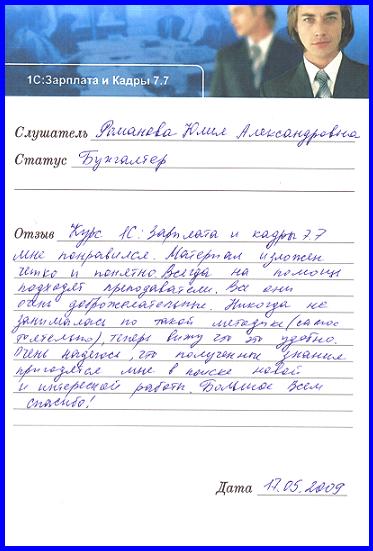 1С:Зарплата и Кадры 7.7
Слушатель Романова Юлия Александровна
Статус Бухгалтер
Отзыв Курс 1С: Зарплата и кадры 7.7
мне понравился. Материал изложен
четко и понятно. Всегда на помощь
подходят преподаватели. Все они
очень доброжелательные. Никогда не
занималась по такой методике (самос
тоятельно), теперь вижу что это удобно.
Очень надеюсь, что полученные знания
пригодятся мне в поиске новой
и интересной работы. Большое всем
спасибо!
Дата 17.05.2009